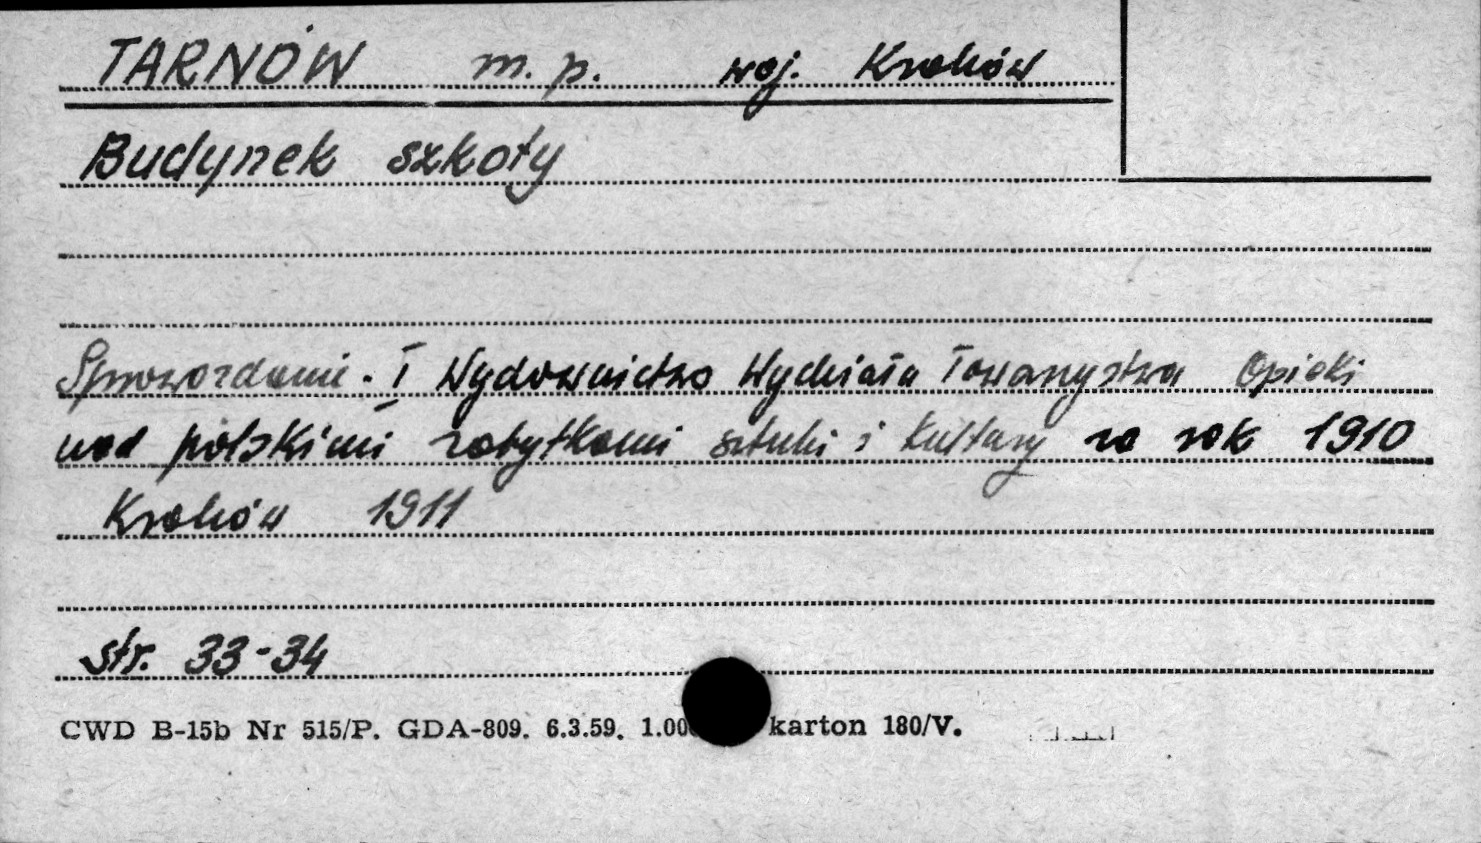 TARNÓW m. p. woj. Kraków
Budynek szkoły
Sprawozdanie. I Wydawnictwo Wydziału Towarzystwa Opieki
nad polskimi zabytkami sztuki i kultury za rok 1910
Kraków 1911
str. 33-34
CWD B-15b Nr 515/P. GDA-809. 6.3.59. 1.00 karton 180/V.